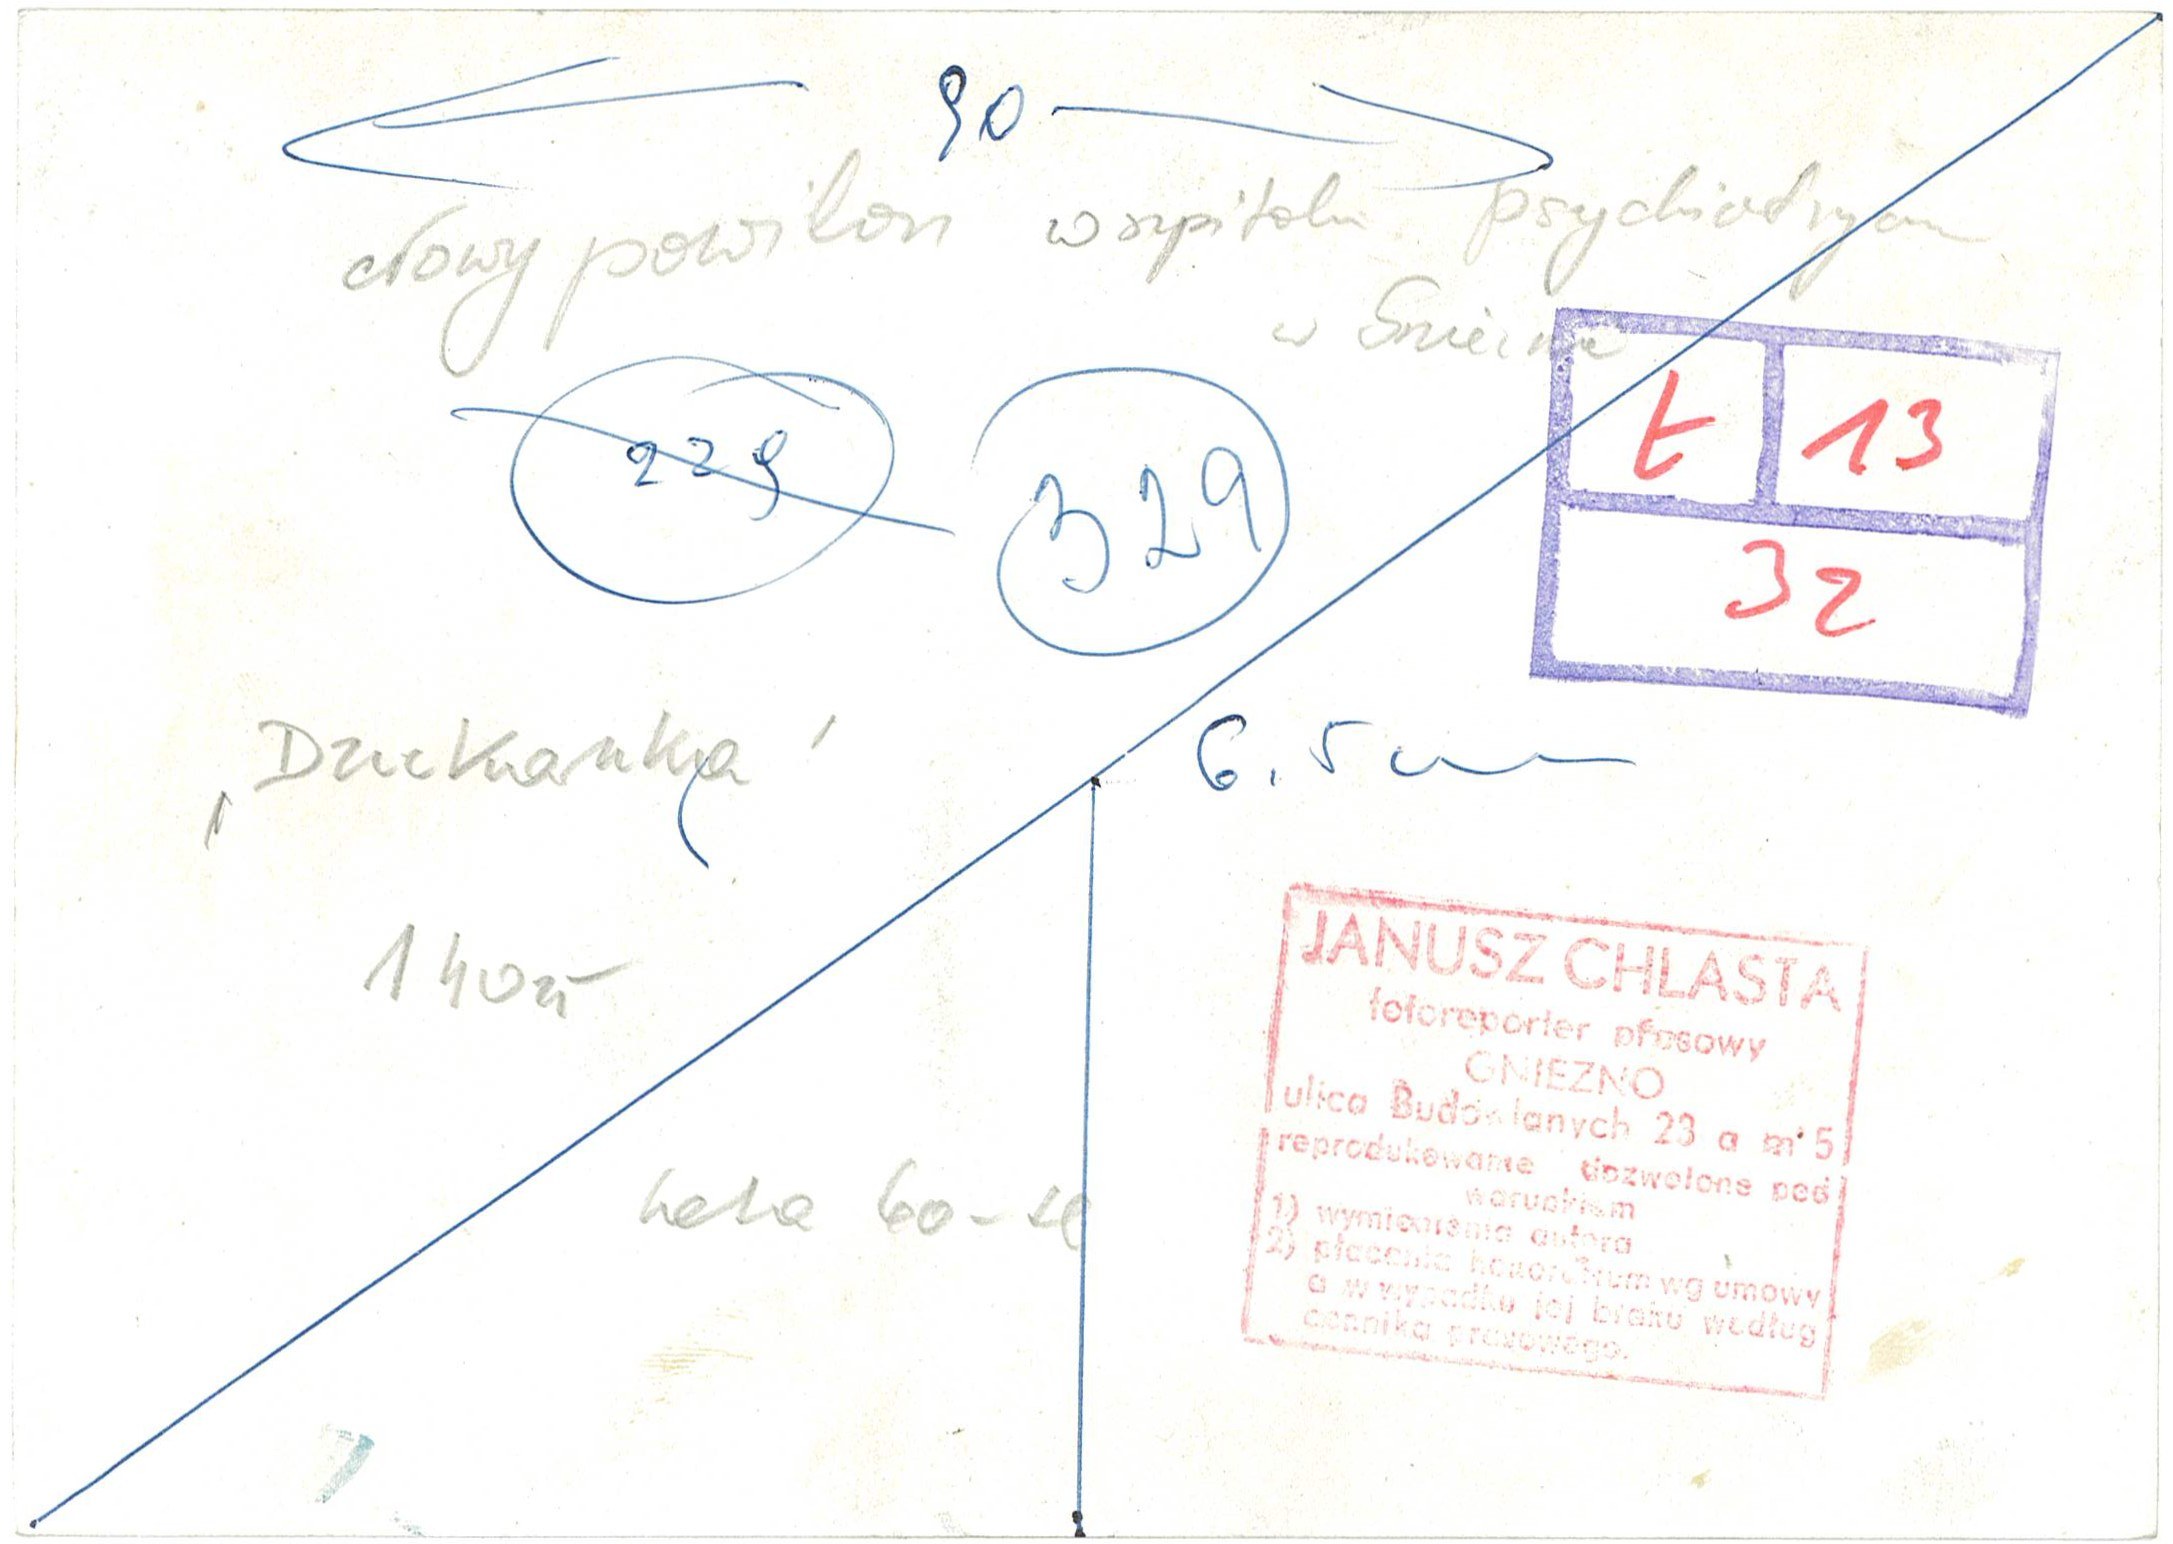 90
Nowy pawilon w szpitalu psychiatrycznym
w Gnieźnie
229
329
t 13
32
"Dziekanka"
6.5 cm
140zł
lata 60-te
JANUSZ CHLASTA
fotoreporter prasowy
GNIEZNO
ulica Budowlanych 23 a m 5
reprodukowanie dozwolone pod
warunkiem
1) wymienienia autora
2) płacenia honorarium wg umowy
a w wypadku jej braku według
cennika prasowego.